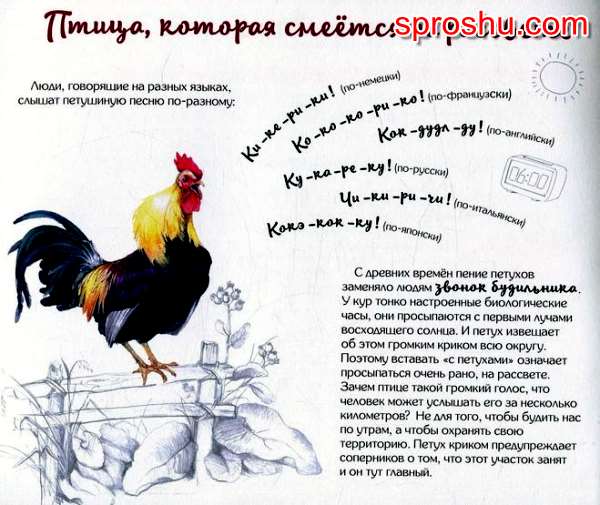 Птица, которая смеётся
sproshu.com
Люди, говорящие на разных языках,
слышат петушиную песню по-разному:
Ки-ке-ри-ки! (по-немецки)
Ко-ко-ко-ри-ко! (по-французски)
Кок-дудл-ду! (по-английски)
Ку-ка-ре-ку! (по-русски)
Чи-ки-ри-чи! (по-итальянски)
Кокэ-кок-ку! (по-японски)
06:00
С древних времён пение петухов
заменяло людям звонок будильника.
У кур тонко настроенные биологические
часы, они просыпаются с первыми лучами
восходящего солнца. И петух извещает
об этом громким криком всю округу.
Поэтому вставать «с петухами» означает
просыпаться очень рано, на рассвете.
Зачем птице такой громкий голос, что
человек может услышать его за несколько
километров? Не для того, чтобы будить нас
по утрам, а чтобы охранять свою
территорию. Петух криком предупреждает
соперников о том, что этот участок занят
и он тут главный.